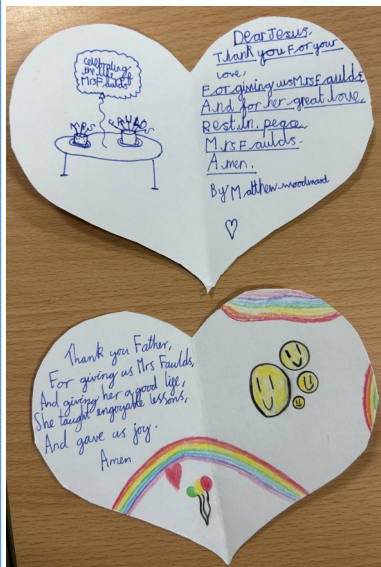 celebrating
the life of
Mrs Faulds
Dear Jesus,
Thank you For your
love,
For giving us Mrs Faulds
And for her great love.
Rest in peace
Mrs Faulds.
Amen.
By Matthew
Thank you Father,
For giving us Mrs Faulds,
And giving her a good life,
She taught engoyable lessons,
And gave us joy.
Amen